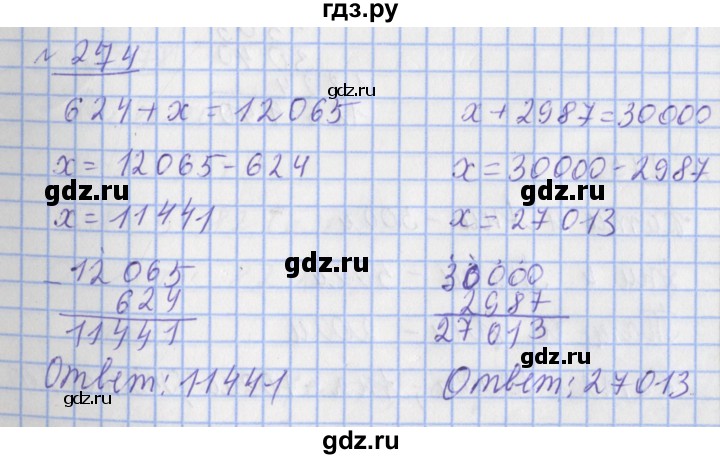 гдз.ру
№ 274
624 + x = 12065
x = 12065 - 624
x = 11441
- 12065
624
11441
Ответ: 11441
x + 2987 = 30000
x = 30000 - 2987
x = 27013
30000
2987
27013
Ответ: 27013
gdz.ru
gdz.ru
gdz.ru
gdz.ru
gdz.ru
gdz.ru
gdz.ru
gdz.ru